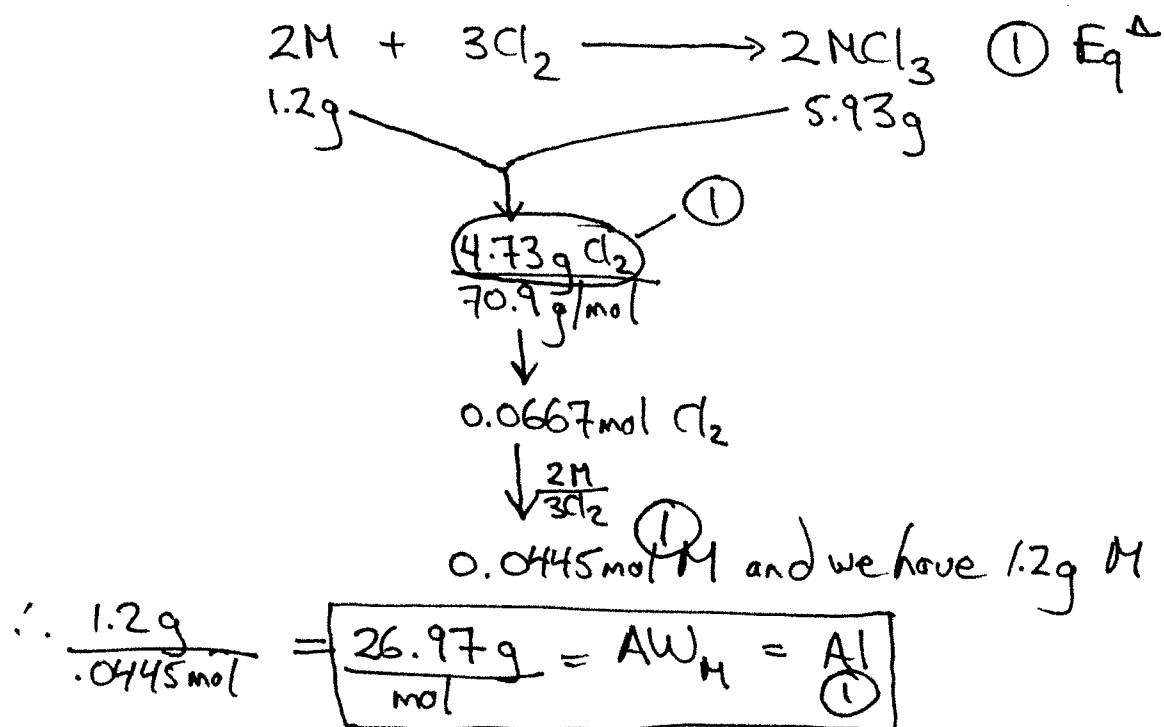 2M + 3Cl₂ ⟶ 2MCl₃ ① Eqⁿ
1.2g 5.93g
①
4.73g Cl₂
70.9 g/mol
0.0667mol Cl₂
2M
3Cl₂
①
0.0445mol M and we have 1.2g M
∴ 1.2g / .0445mol = 26.97g / mol = AW_M = Al
①